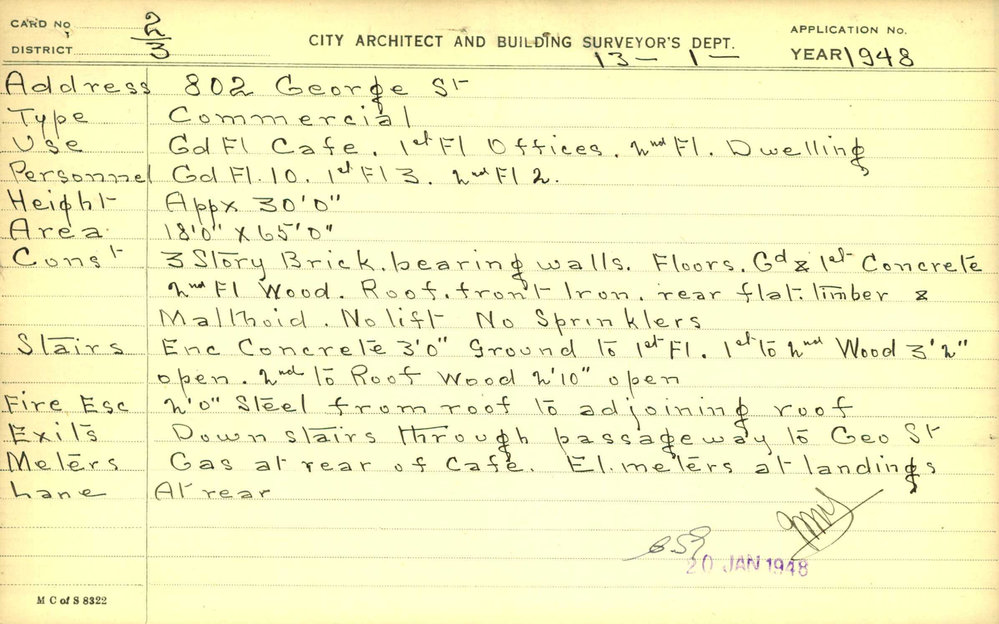 CARD No 2
DISTRICT 3
CITY ARCHITECT AND BUILDING SURVEYOR'S DEPT.
13 - 1 -
APPLICATION No.
YEAR 1948
Address 802 George St
Type Commercial
Use Gd Fl Cafe. 1st Fl Offices. 2nd Fl. Dwelling
Personnel Gd Fl. 10. 1st Fl 3. 2nd Fl 2.
Height Appx 30'0"
Area 18'0" x 65'0"
Const 3 Story Brick. bearing walls. Floors. Gd & 1st Concrete
2nd Fl Wood. Roof. front Iron. rear flat. timber &
Malthoid. No lift No Sprinklers
Stairs Enc Concrete 3'0" Ground to 1st Fl. 1st to 2nd Wood 3'2"
open. 2nd to Roof Wood 2'10" open
Fire Esc 2'0" Steel from roof to adjoining roof
Exits Down stairs through passageway to Geo St
Meters Gas at rear of Cafe. El. meters at landings
Lane At rear
20 JAN 1948
M C of S 8322